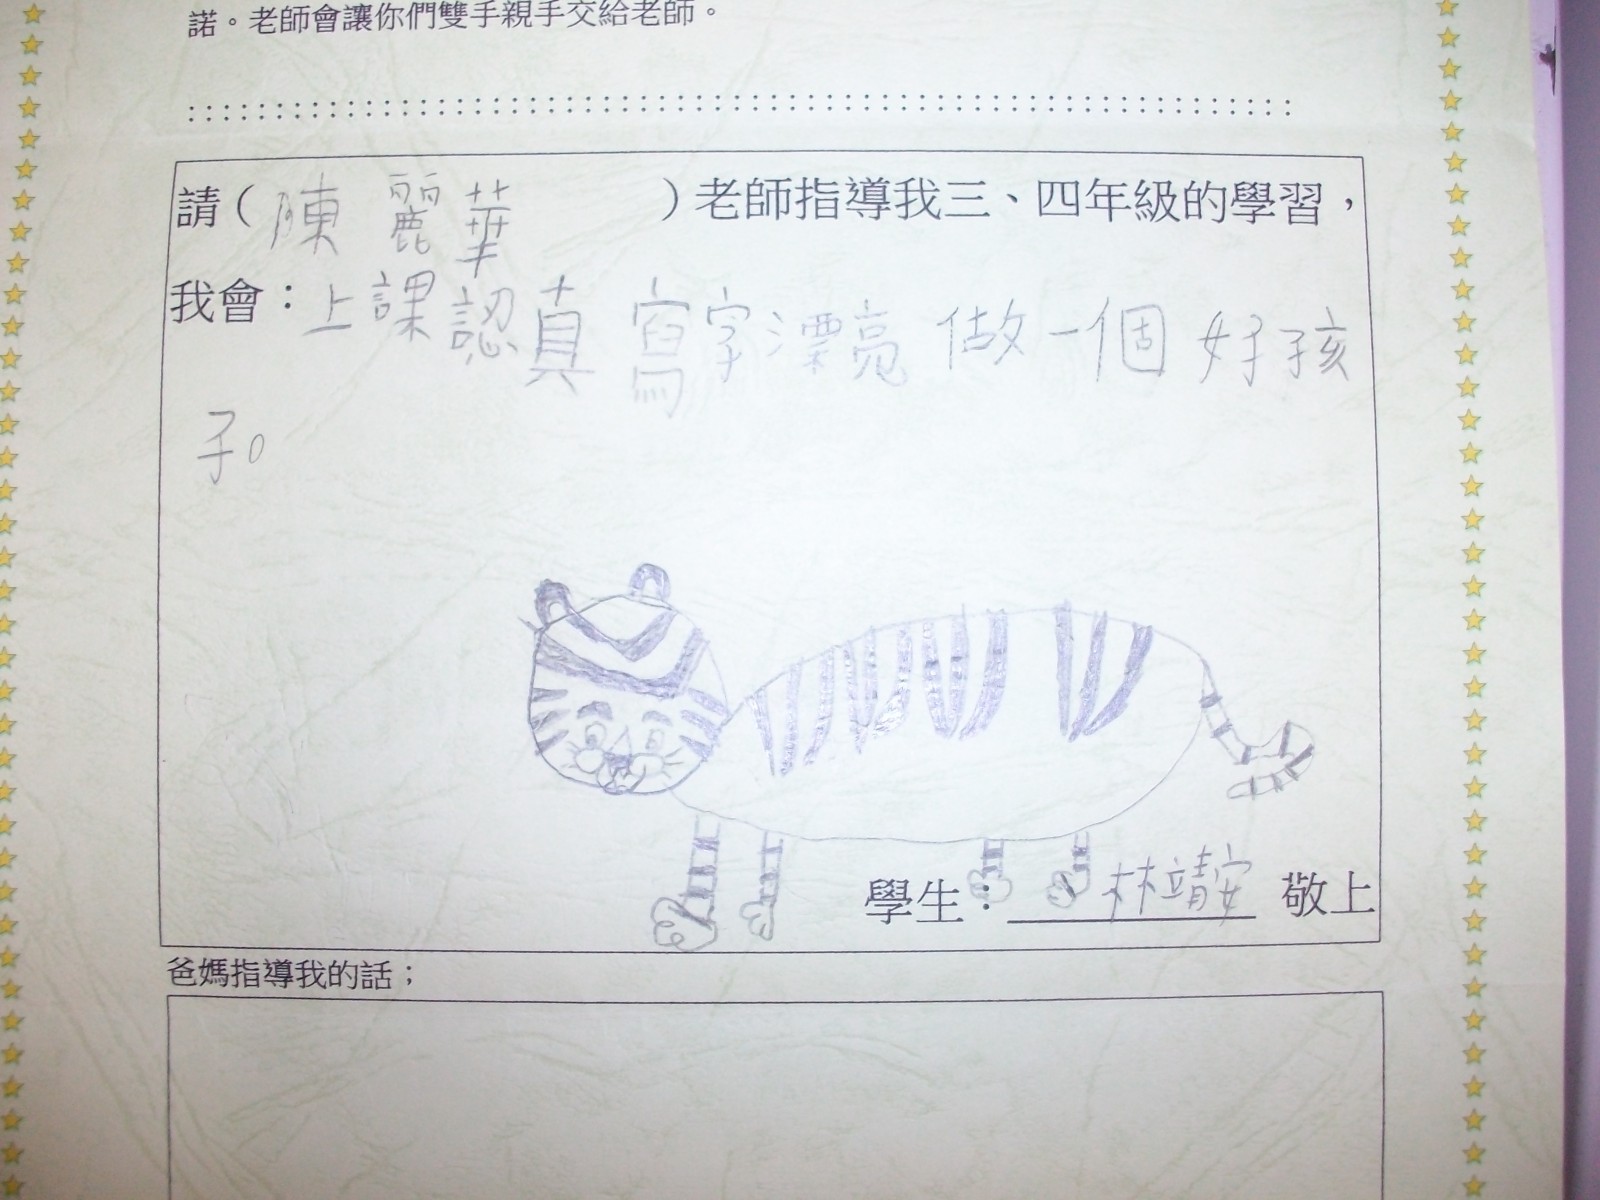 諾。老師會讓你們雙手親手交給老師。
請(陳麗華)老師指導我三、四年級的學習，
我會：上課認真 寫字漂亮 做一個好孩
子。
學生：林靖安 敬上
爸媽指導我的話；